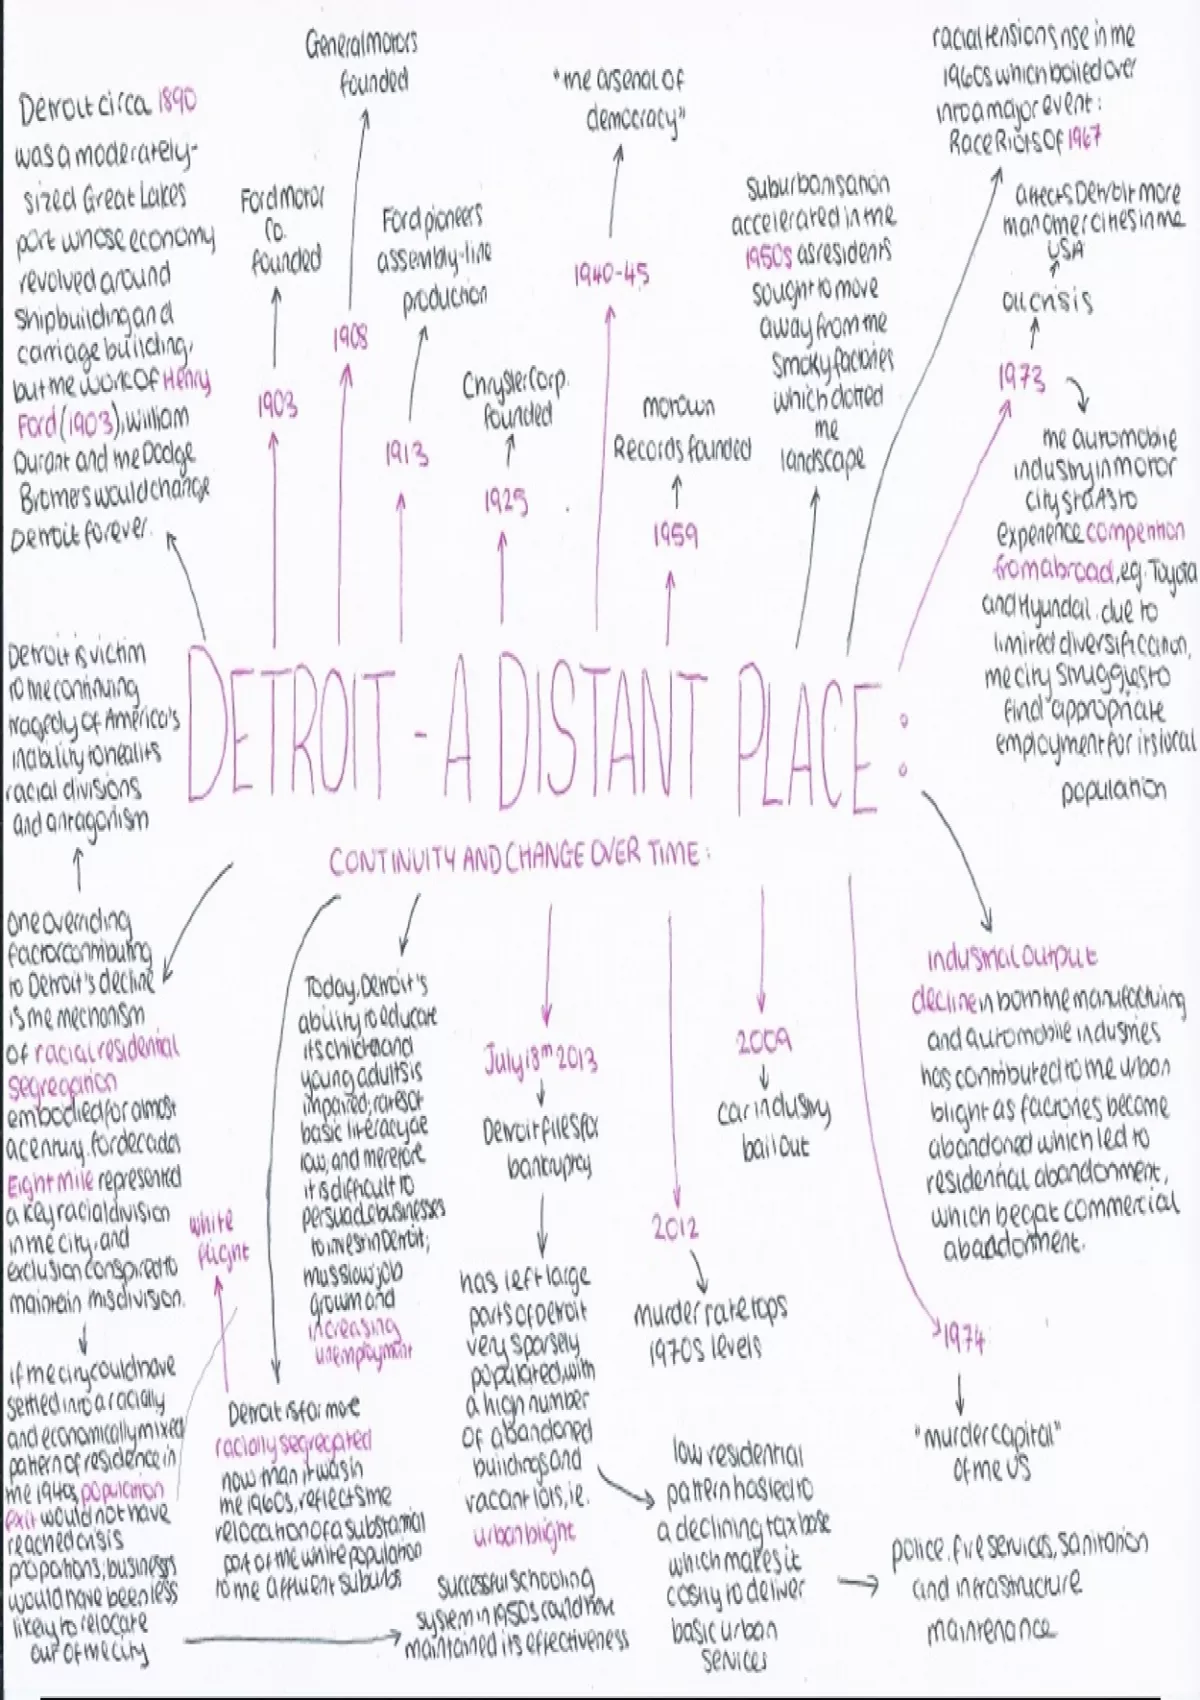 Detroit circa 1890
was a moderately-
sized Great Lakes
port whose economy
revolved around
shipbuilding and
carriage building,
but the work of Henry
Ford (1903), William
Durant and the Dodge
Brothers would change
Detroit forever.
Ford Motor
Co.
founded
1903
General Motors
founded
1908
Ford pioneers
assembly-line
production
1913
Chrysler Corp.
founded
1925
"the arsenal of
democracy"
1940-45
motown
Records founded
1959
Suburbanisation
accelerated in the
1950s as residents
sought to move
away from the
smoky factories
which dotted
the
landscape
racial tensions rise in the
1960s which boiled over
into a major event:
Race Riots of 1967
affects Detroit more
than other cities in the
USA
oil crisis
1973
the automobile
industry in motor
city starts to
experience competition
from abroad, eg. Toyota
and Hyundai. due to
limited diversification,
the city struggles to
find appropriate
employment for its local
population
DETROIT - A DISTANT PLACE:
CONTINUITY AND CHANGE OVER TIME:
Detroit is victim
to the continuing
tragedy of America's
inability to heal its
racial divisions
and antagonism
One overriding
factor contributing
to Detroit's decline
is the mechanism
of racial residential
segregation
embodied for almost
a century. for decades
Eight mile represented
a key racial division
in the city, and
exclusion conspired to
maintain this division.
if the city could have
settled into a racially
and economically mixed
pattern of residence in
the 1940s, population
exit would not have
reached crisis
proportions; businesses
would have been less
likely to relocate
out of the city
successful schooling
system in 1950s could have
maintained its effectiveness
white
flight
Detroit is far more
racially segregated
now than it was in
the 1960s, reflects the
relocation of a substantial
part of the white population
to the affluent suburbs
Today, Detroit's
ability to educate
its children and
young adults is
impaired; rates of
basic literacy are
low, and therefore
it is difficult to
persuade businesses
to invest in Detroit;
thus slow job
growth and
increasing
unemployment
July 18th 2013
Detroit files for
bankruptcy
has left large
parts of Detroit
very sparsely
populated, with
a high number
of abandoned
buildings and
vacant lots, ie.
urban blight
low residential
pattern has led to
a declining tax base
which makes it
costly to deliver
basic urban
services
police, fire services, sanitation
and infrastructure
maintenance
2012
murder rate tops
1970s levels
2009
car industry
bail out
1974
"murder capital"
of the US
industrial output
decline in both the manufacturing
and automobile industries
has contributed to the urban
blight as factories become
abandoned which led to
residential abandonment,
which begat commercial
abandonment.